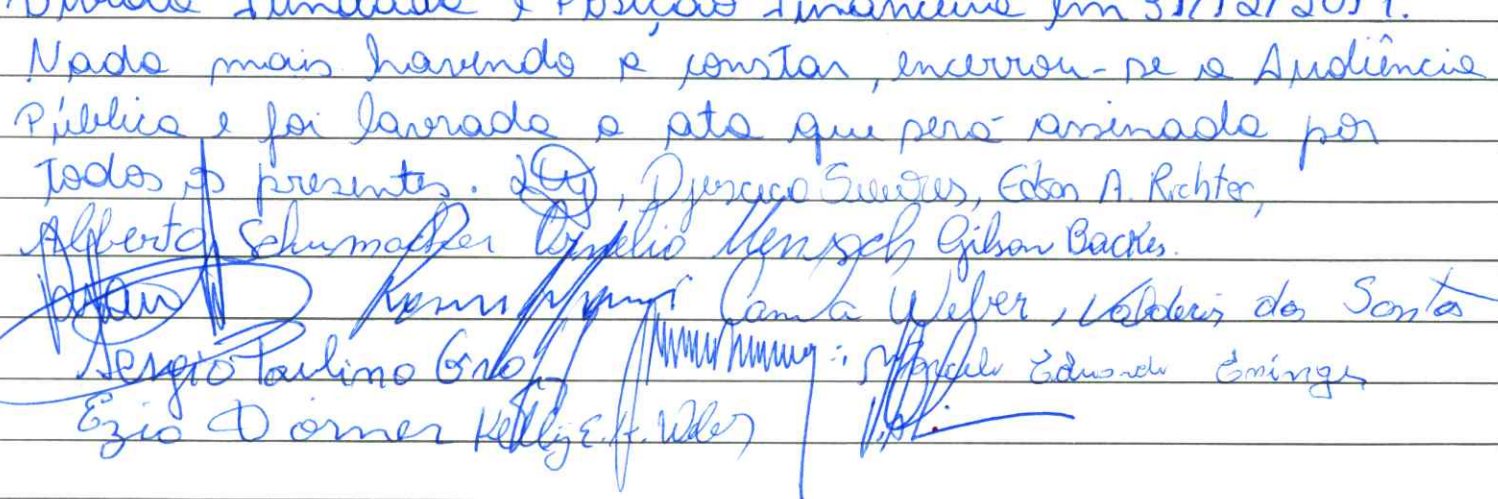 Dívida Fundada e Posição Financeira em 31/12/2011.
Nada mais havendo a constar, encerrou-se a Audiência
Pública e foi lavrada a ata que será assinada por
todos os presentes. Edson A. Richter,
Alberto Schumacher Cornélio Mensch Gilson Backes.
Camila Weber, Valderis dos Santos
Sergio Paulino Marcelo Eduardo Eninger
Ezio Dörner Kelly E. H. Weber